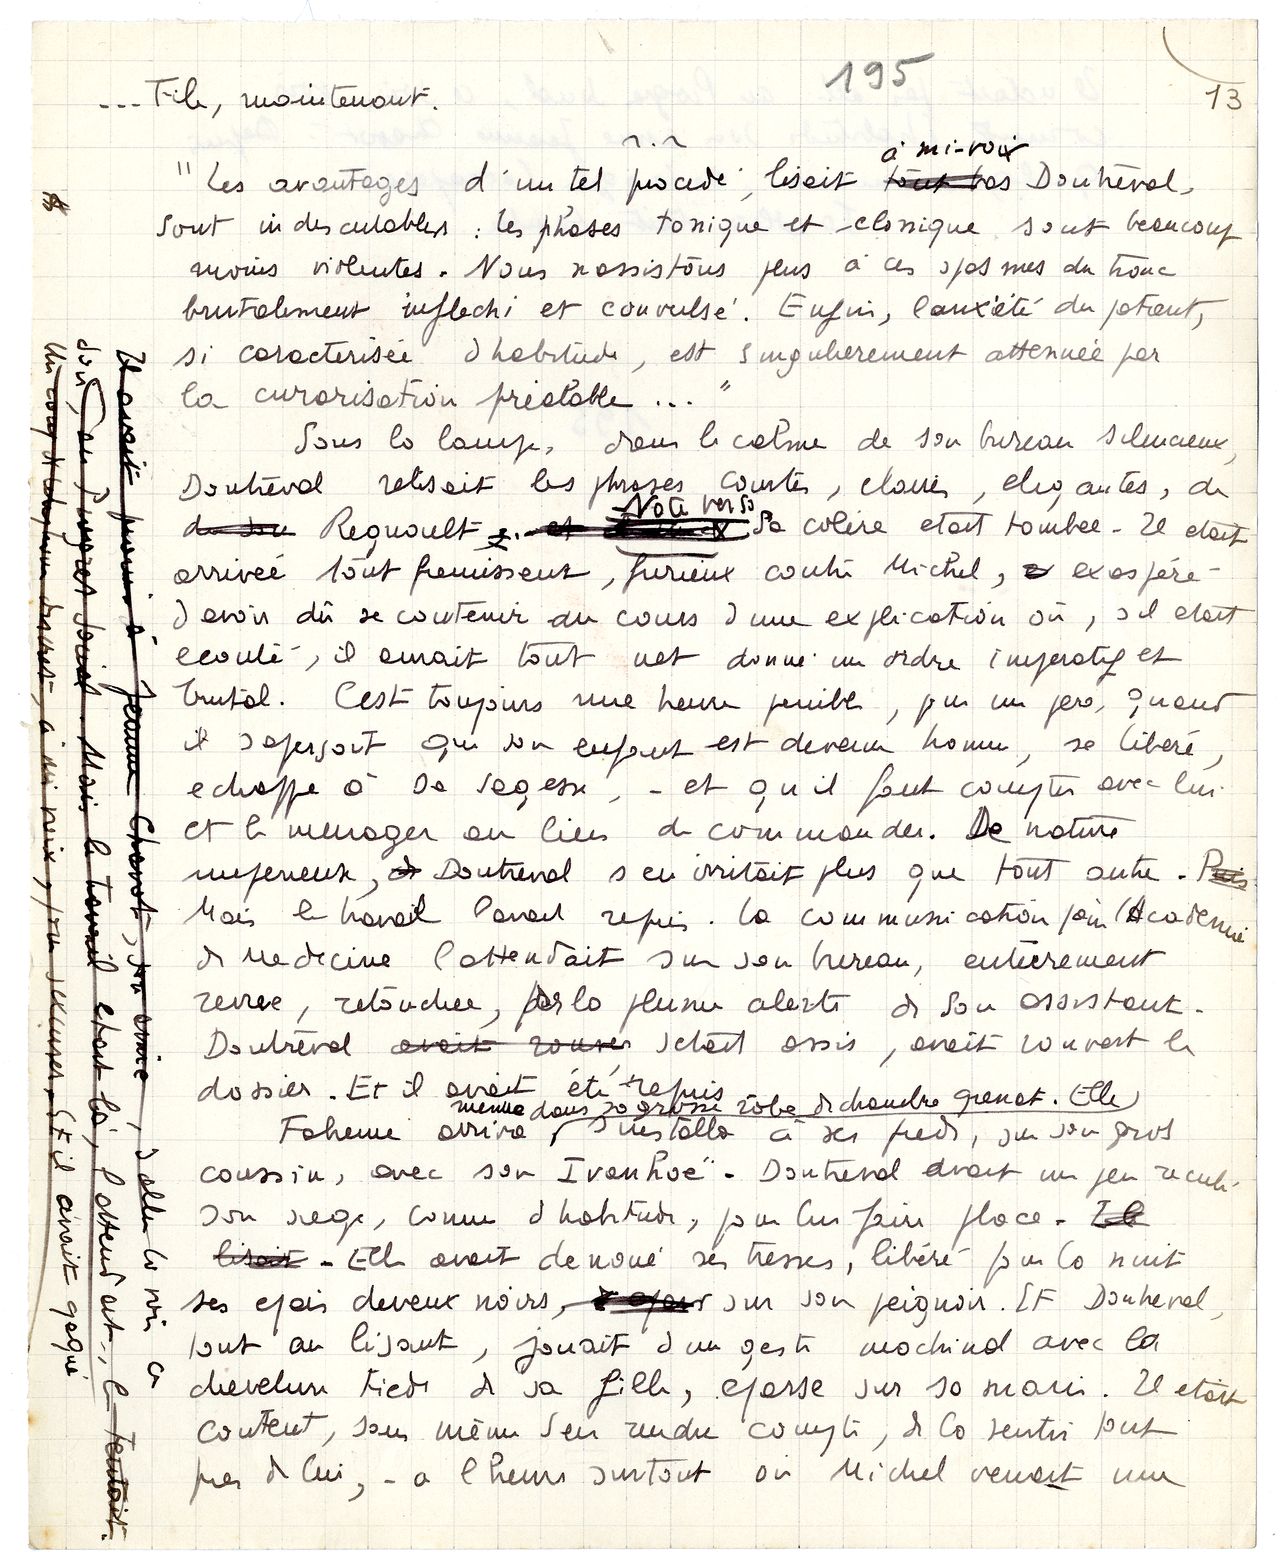 195
13
... File, maintenant.
à mi-voix
"Les avantages d'un tel procédé, lisait tout bas Doutreval,
sont indiscutables : les phases tonique et clonique sont beaucoup
moins violentes. Nous n'assistons plus à ces spasmes du tronc
brutalement infléchi et convulsé. Enfin, l'anxiété du patient,
si caractérisée d'habitude, est singulièrement atténuée par
la curarisation préalable ... "
Sous la lampe, dans le calme de son bureau silencieux,
Doutreval relisait les phrases courtes, claires, élégantes, de
Note verso
de son Regnoult. et Sa colère était tombée - Il était
arrivé tout frémissant, furieux contre Michel, exaspéré
d'avoir dû se contenir au cours d'une explication où, s'il s'était
écouté, il aurait tout net donné un ordre impératif et
brutal. C'est toujours une heure pénible, pour un père, quand
il s'aperçoit que son enfant est devenu homme, se libère,
échappe à sa sagesse, - et qu'il faut compter avec lui
et le ménager au lieu de commander. De nature
impérieuse, Doutreval s'en irritait plus que tout autre. Puis
Mais le travail l'avait repris. La communication pour l'Académie
de Médecine l'attendait sur son bureau, entièrement
revue, retouchée, par la plume alerte de son assistant.
Doutreval avait s'était assis, avait rouvert le
dossier. Et il avait été repris
menue dans sa grosse robe de chambre grenat. Elle
Fabienne arriva, s'installa à ses pieds, sur son gros
coussin, avec son Ivanhoë" - Doutreval avait un peu reculé
son siège, comme d'habitude, pour lui faire place - Il
lisait - Elle avait dénoué ses tresses, libéré pour la nuit
ses épais cheveux noirs, sur son peignoir. Et Doutreval,
tout en lisant, jouait d'un geste machinal avec la
chevelure tiède de sa fille, éparse sur sa main. Il était
content, sans même s'en rendre compte, de la sentir tout
près de lui, - à l'heure surtout où Michel venait une
Il avait promis à Jeanne Chavot, son amie, d'aller la voir ce
soir, au Progrès Social. Mais le travail était là, l'attendant, le tentait.
Un coup de téléphone discret, à mi-voix, pour s'excuser. Et il avait gagné